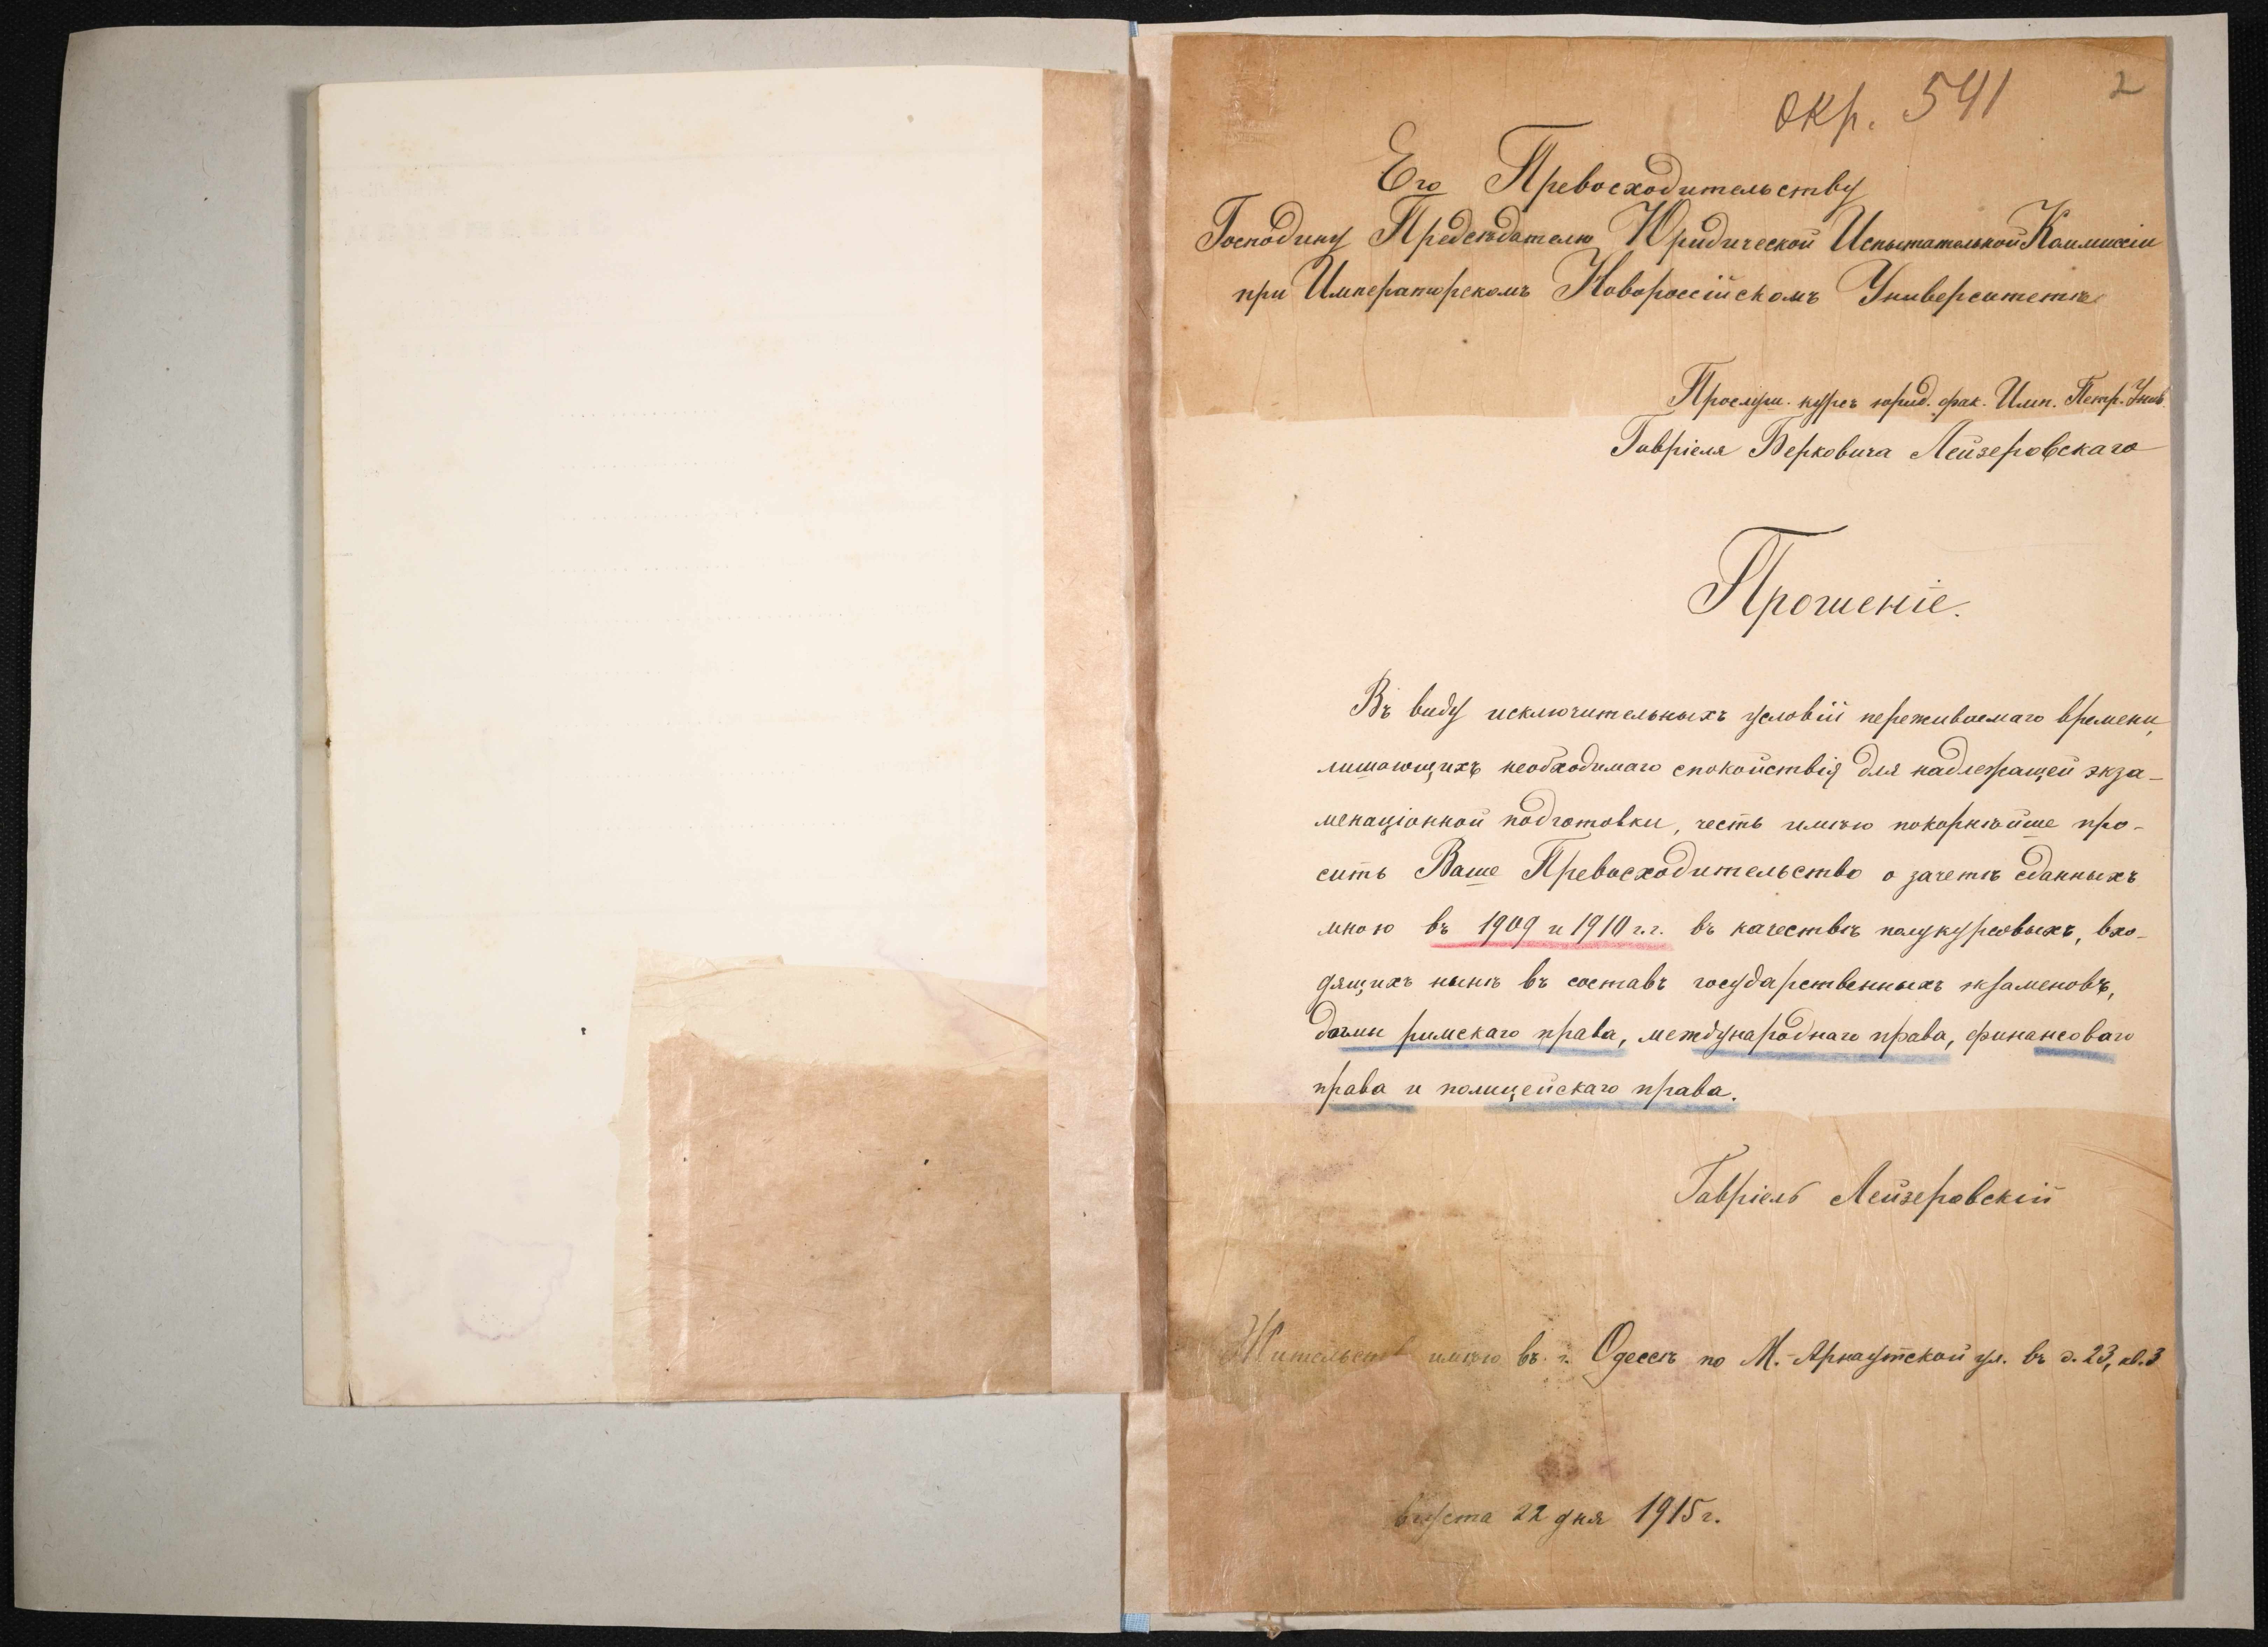 окр. 541
2
Его Превосходительству
Господину Предсѣдателю Юридической Испытательной Коммиссіи
при Императорскомъ Новороссійскомъ Университетѣ
Прослуш. курсъ юрид. фак. Имп. Петр. Унив.
Гавріеля Берковича Лейзеровскаго
Прошеніе.
Въ виду исключительныхъ условій переживаемаго времени,
лишающихъ необходимаго спокойствія для надлежащей экза-
менаціонной подготовки, честь имѣю покорнѣйше про-
сить Ваше Превосходительство о зачетѣ сданныхъ
мною въ 1909 и 1910 г.г. въ качествѣ полукурсовыхъ, вхо-
дящихъ нынѣ въ составъ государственныхъ экзаменовъ,
догмы римскаго права, международнаго права, финансоваго
права и полицейскаго права.
Гавріель Лейзеровскій
Жительст имѣю въ г. Одессѣ по М.-Арнаутской ул. въ д. 23, кв. 3
вгуста 22 дня 1915 г.